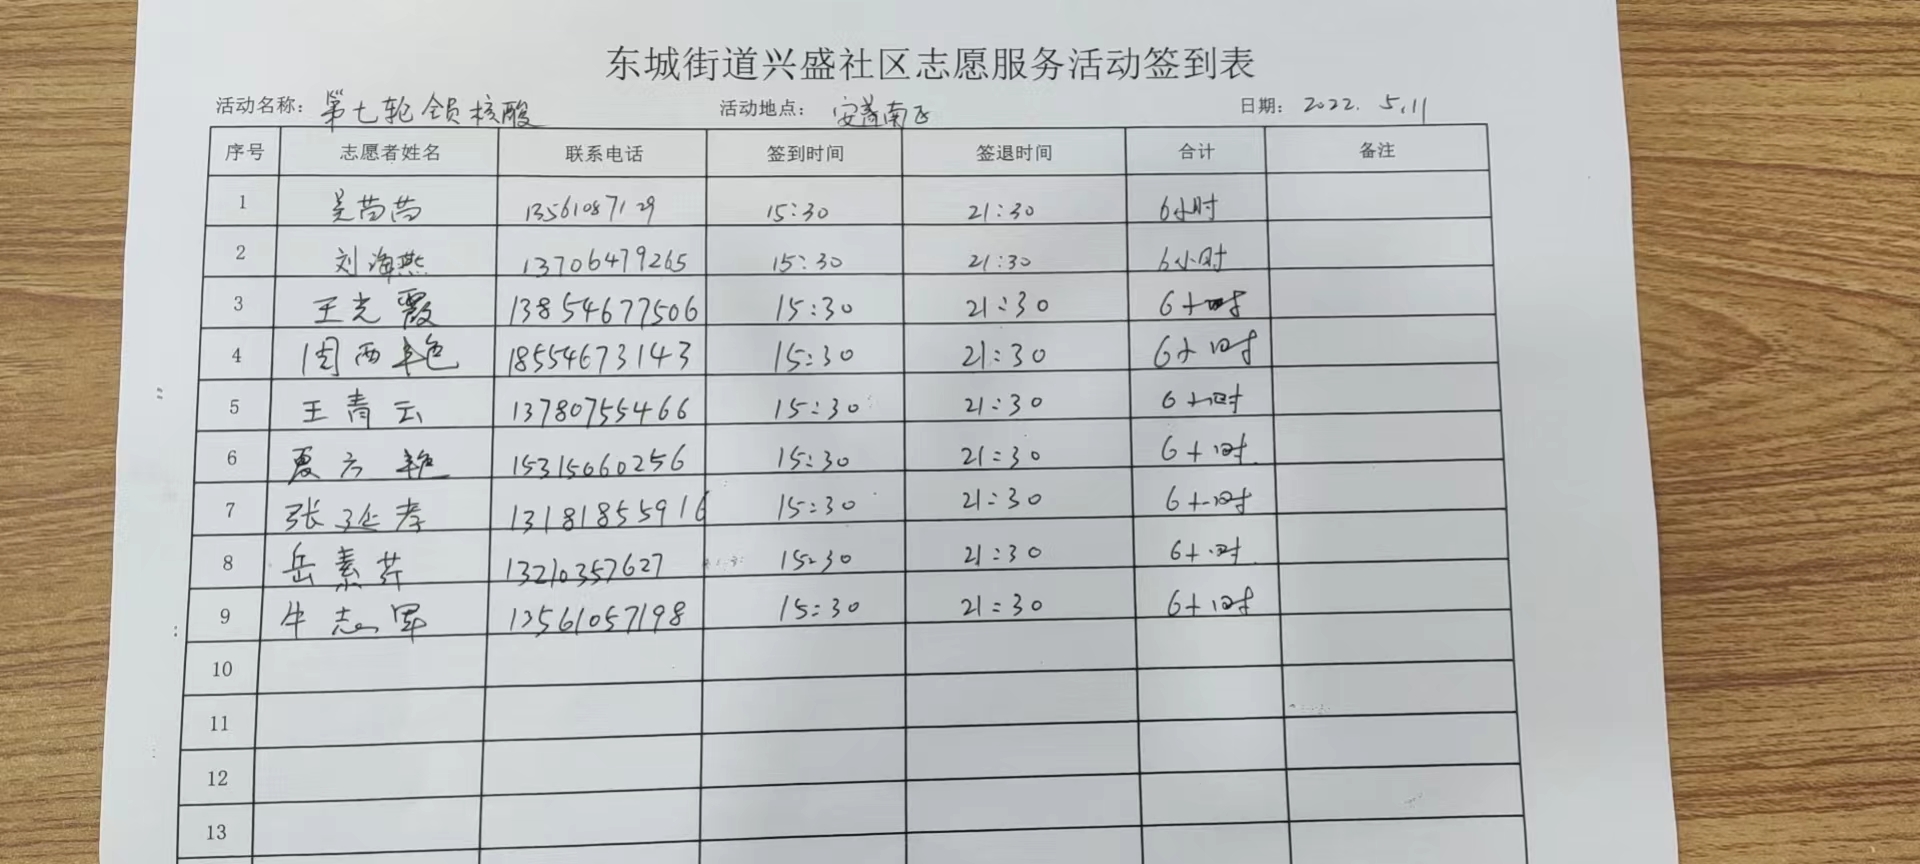 东城街道兴盛社区志愿服务活动签到表
活动名称： 第七轮全员核酸 活动地点： 安泰南区 日期： 2022. 5.11
序号 志愿者姓名 联系电话 签到时间 签退时间 合计 备注
1 吴苗苗 13561087129 15:30 21:30 6小时
2 刘海燕 13706479265 15:30 21:30 6小时
3 王光霞 13854677506 15:30 21:30 6小时
4 周西艳 18554673143 15:30 21:30 6小时
5 王青云 13780755466 15:30 21:30 6小时
6 夏方艳 15315060256 15:30 21:30 6小时
7 张延孝 13181855916 15:30 21:30 6小时
8 岳素芹 13210357627 15:30 21:30 6小时
9 牛志军 13561057198 15:30 21:30 6小时
10
11
12
13